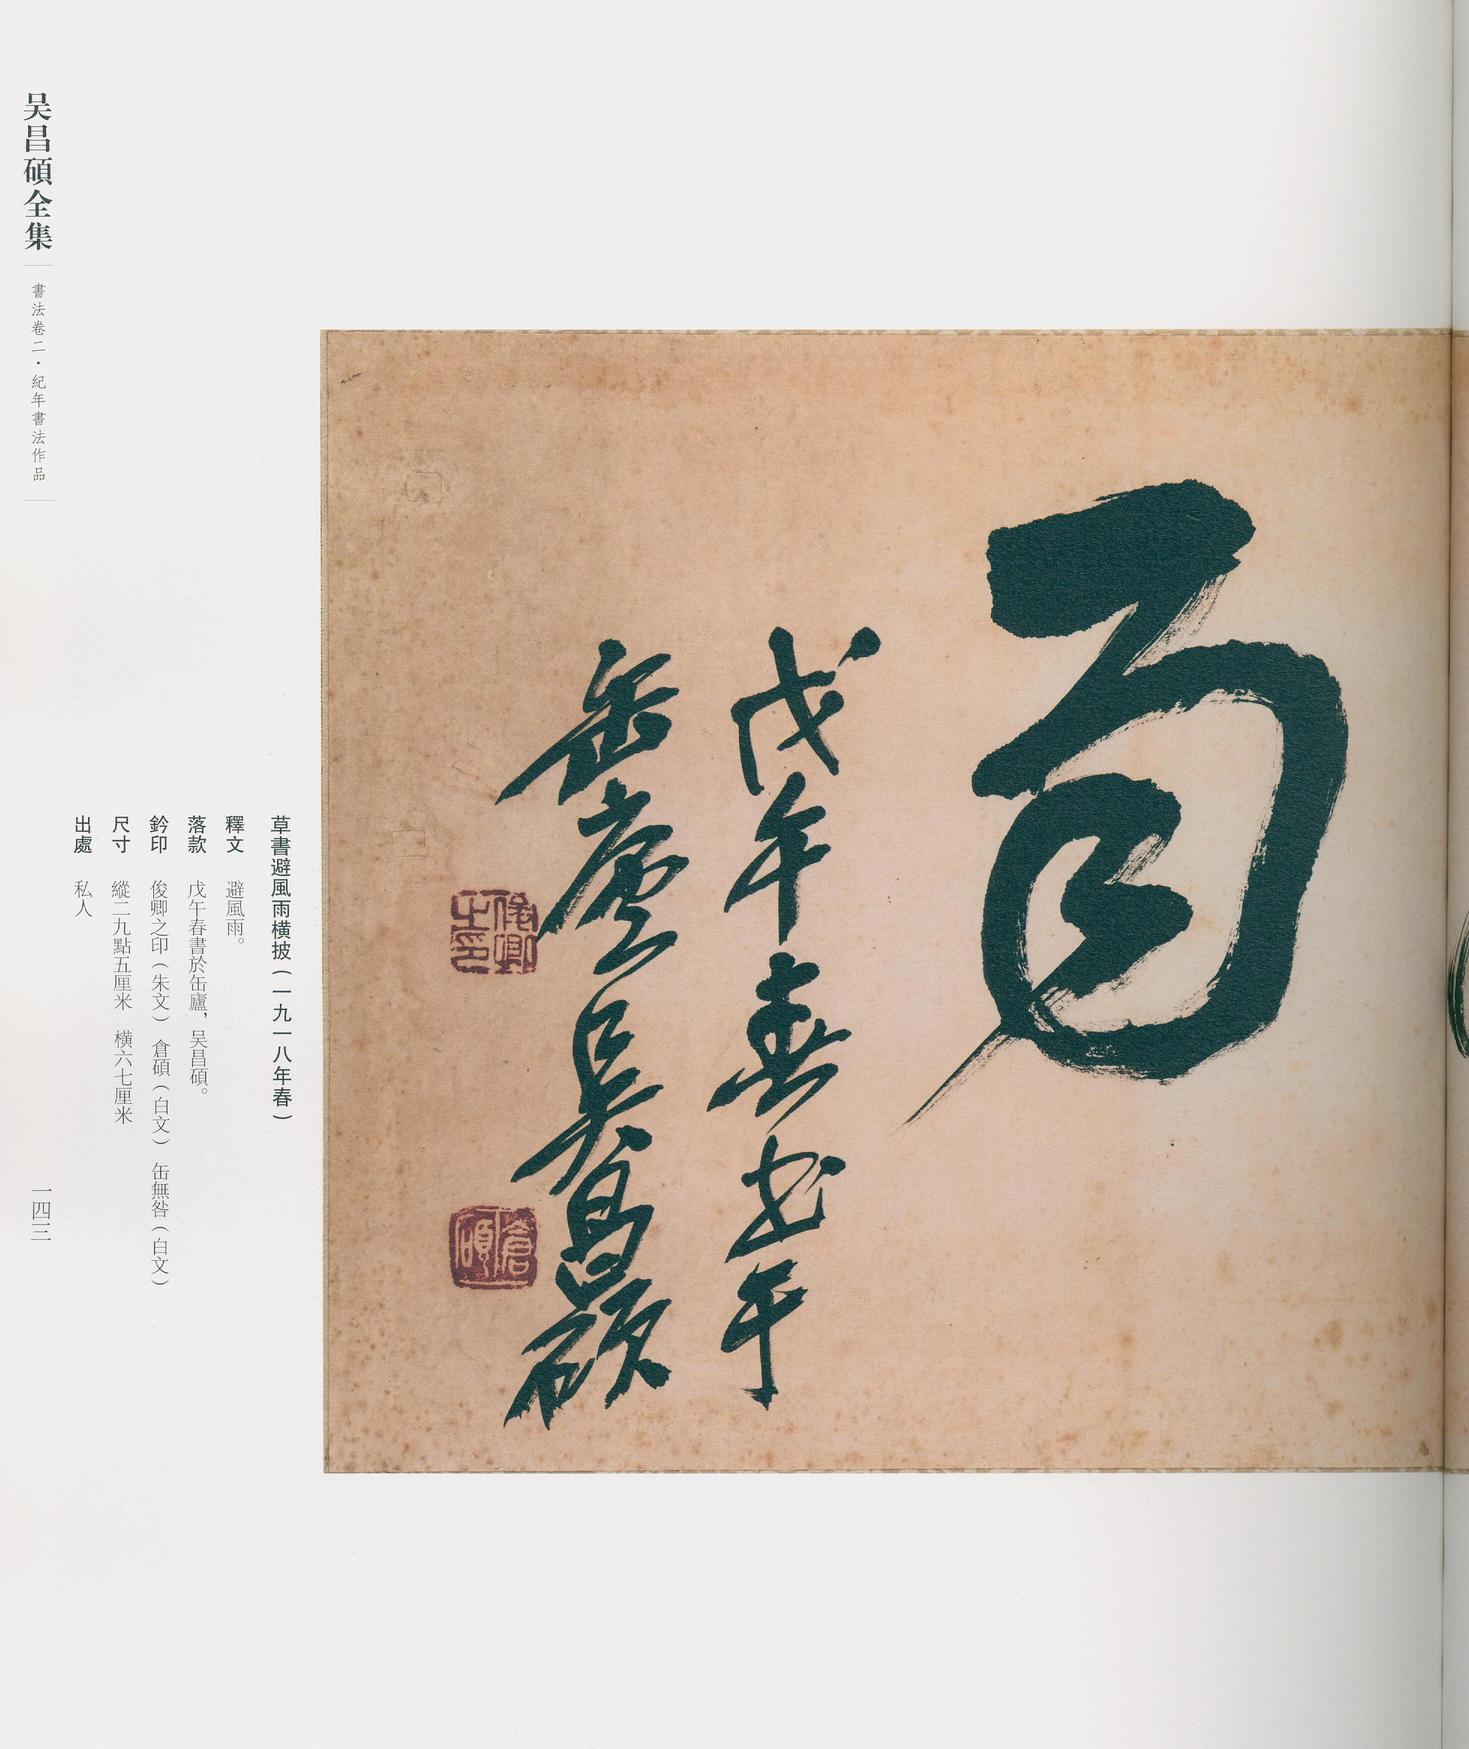 雨
戊午春書於
缶廬吴昌碩
俊卿之印
倉碩
草書避風雨橫披（一九一八年春）
釋文　避風雨。
落款　戊午春書於缶廬，吴昌碩。
鈐印　俊卿之印（朱文）　倉碩（白文）　缶無咎（白文）
尺寸　縱二九點五厘米　橫六七厘米
出處　私人
吴昌碩全集
書法卷二・紀年書法作品
一四三